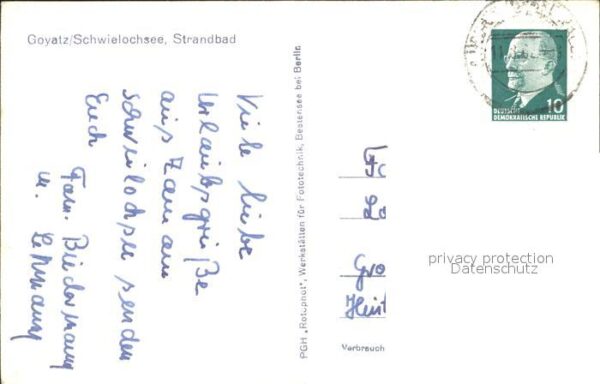 Goyatz/Schwielochsee, Strandbad
Viele liebe
Urlaubsgrüße
aus Zaue am
Schwielochsee senden
Euch
Fam. Biedermann
u. Lehmann
PGH „Rotophot“, Werkstätten für Fototechnik, Bestensee bei Berlin
10
DEUTSCHE
DEMOKRATISCHE REPUBLIK
Fa
La
Gro
Hint
privacy protection
Datenschutz
Verbrauch